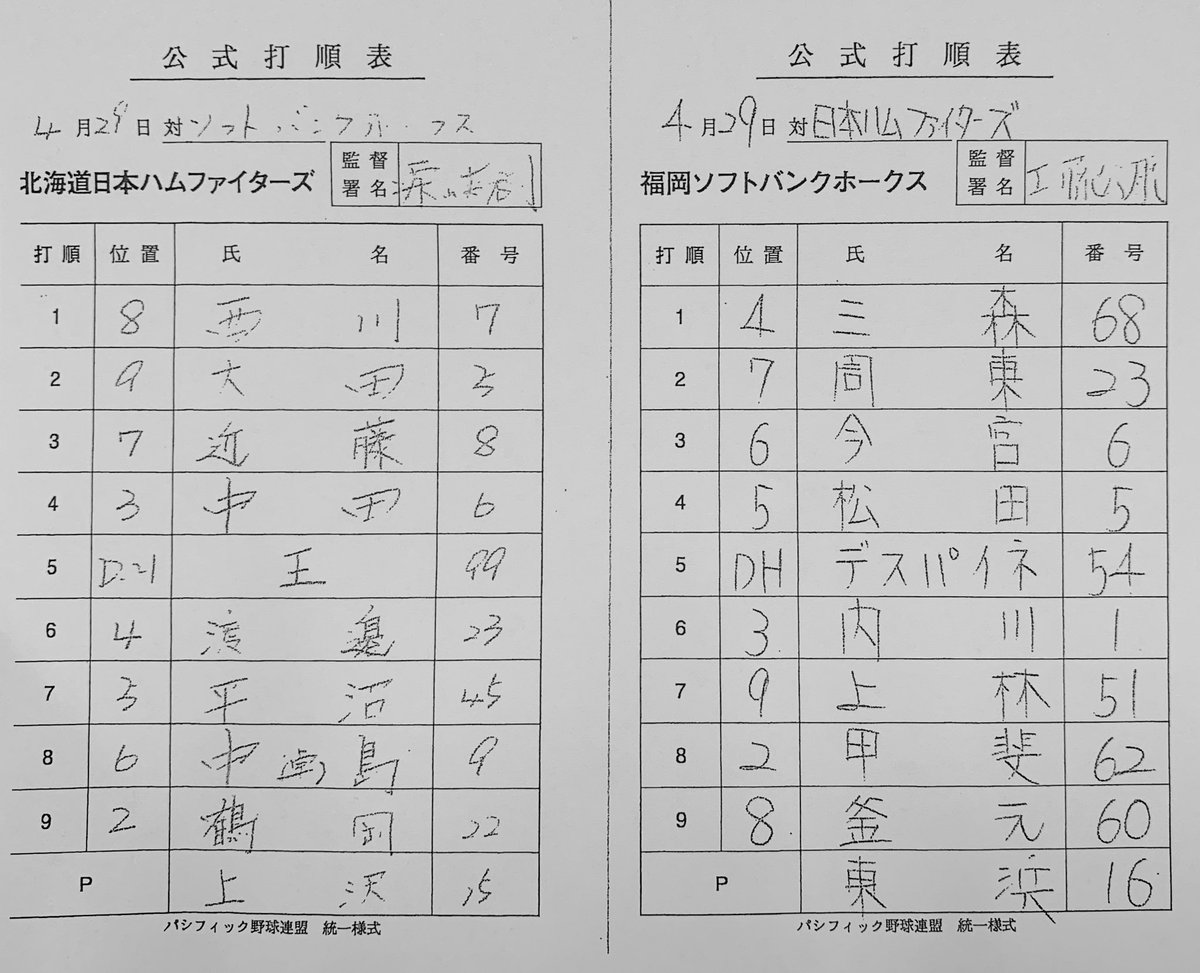 公式打順表
4月29日 対 ソフトバンクホークス
北海道日本ハムファイターズ 監督署名 栗山英樹
打順 位置 氏名 番号
1 8 西川 7
2 9 大田 5
3 7 近藤 8
4 3 中田 6
5 D.H 王 99
6 4 渡邉 23
7 5 平沼 45
8 6 中島 9
9 2 鶴岡 22
P 上沢 15
パシフィック野球連盟 統一様式
公式打順表
4月29日 対 日本ハムファイターズ
福岡ソフトバンクホークス 監督署名 工藤公康
打順 位置 氏名 番号
1 4 三森 68
2 7 周東 23
3 6 今宮 6
4 5 松田 5
5 DH デスパイネ 54
6 3 内川 1
7 9 上林 51
8 2 甲斐 62
9 8 釜元 60
P 東浜 16
パシフィック野球連盟 統一様式